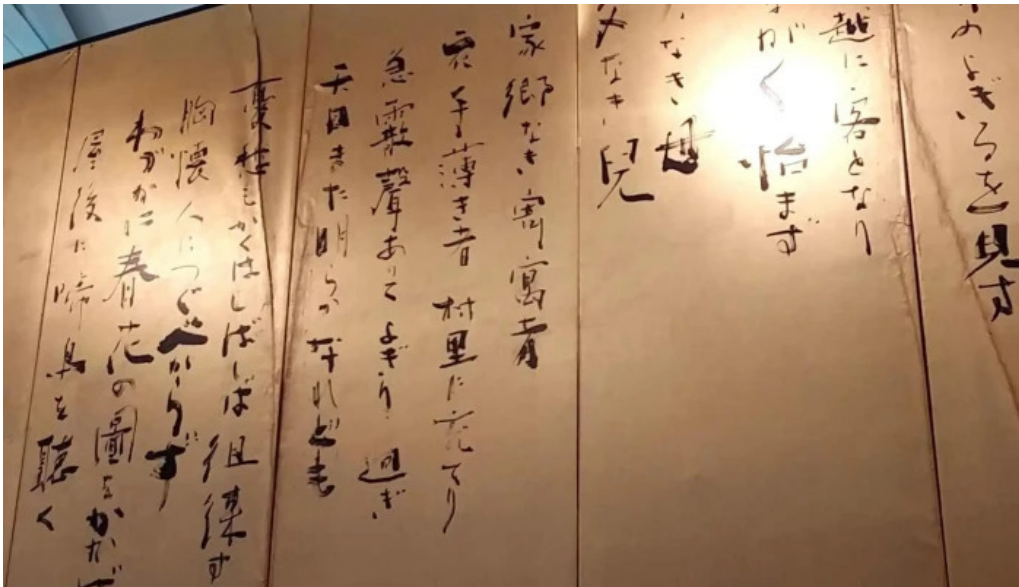 のよぎるを見す
越に客となり
がく怡まず
なき母
父なき兒
家郷なき寄寓者
衣手薄き者 村里に充てり
急霰聲ありてよぎり過ぎ
天日また明らかなれども
憂愁もかくはしばしば徂徠す
胸懷 人につぐべからず
わづかに春花の圖をかか
屋後に啼鳥を聴く